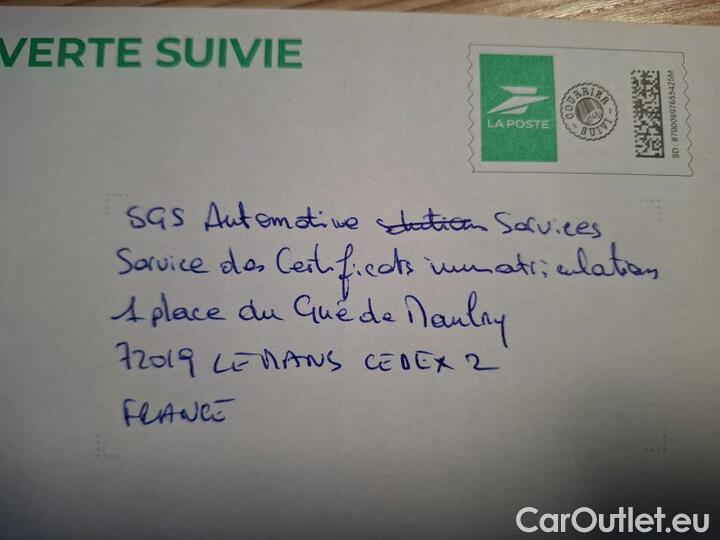 VERTE SUIVIE
LA POSTE
COURRIER
SUIVI
SD : 87000997655425M
SGS Automotive solutions Services
Service des Certificats immatriculation
1 place du Gué de Maulny
72019 LE MANS CEDEX 2
FRANCE
CarOutlet.eu